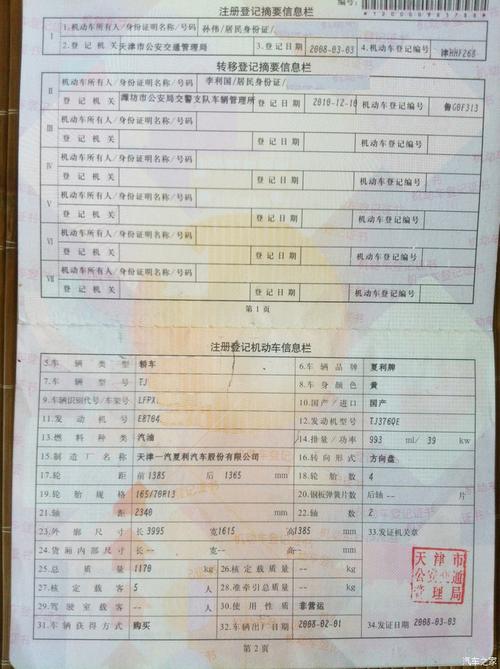 编号: *120009857868*
注册登记摘要信息栏
I 1.机动车所有人/身份证明名称/号码 孙伟/居民身份证/
2.登记机关 天津市公安交通管理局 3.登记日期 2008-03-03 4.机动车登记编号 津HHF268
转移登记摘要信息栏
II 机动车所有人/身份证明名称/号码 李利国/居民身份证/
登记机关 潍坊市公安局交警支队车辆管理所 登记日期 2010-12-10 机动车登记编号 鲁G0F313
III 机动车所有人/身份证明名称/号码
登记机关 登记日期 机动车登记编号
IV 机动车所有人/身份证明名称/号码
登记机关 登记日期 机动车登记编号
V 机动车所有人/身份证明名称/号码
登记机关 登记日期 机动车登记编号
VI 机动车所有人/身份证明名称/号码
登记机关 登记日期 机动车登记编号
VII 机动车所有人/身份证明名称/号码
登记机关 登记日期 机动车登记编号
第1页
注册登记机动车信息栏
5.车辆类型 轿车 6.车辆品牌 夏利牌
7.车辆型号 TJ 8.车身颜色 黄
9.车辆识别代号/车架号 LFPX 10.国产/进口 国产
11.发动机号 E8704 12.发动机型号 TJ376QE
13.燃料种类 汽油 14.排量/功率 993 ml/ 39 kw
15.制造厂名称 天津一汽夏利汽车股份有限公司 16.转向形式 方向盘
17.轮距 前1385 后1365 mm 18.轮胎数 4
19.轮胎规格 165/70R13 20.钢板弹簧片数 后轴-- 片
21.轴距 2340 mm 22.轴数 2
23.外廓尺寸 长3995 宽1615 高1385 mm 33.发证机关章
24.货厢内部尺寸 长-- 宽-- 高-- mm
25.总质量 1170 kg 26.核定载质量 -- kg
27.核定载客 5 人 28.准牵引总质量 -- kg
29.驾驶室载客 -- 人 30.使用性质 非营运
31.车辆获得方式 购买 32.车辆出厂日期 2008-02-01 34.发证日期 2008-03-03
天津市
公安交通
管理局
第2页
汽车之家